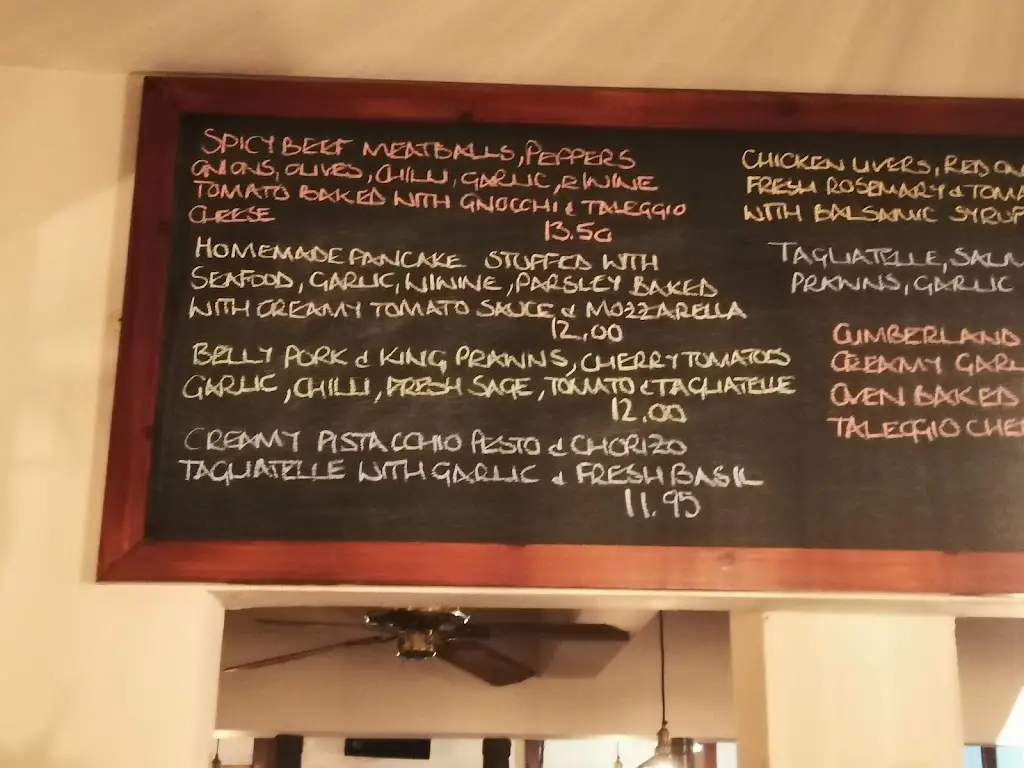 SPICY BEEF MEATBALLS, PEPPERS
ONIONS, OLIVES, CHILLI, GARLIC, R WINE
TOMATO BAKED WITH GNOCCHI & TALEGGIO
CHEESE
13.50
HOMEMADE PANCAKE STUFFED WITH
SEAFOOD, GARLIC, W.WINE, PARSLEY BAKED
WITH CREAMY TOMATO SAUCE & MOZZARELLA
12.00
BELLY PORK & KING PRAWNS, CHERRY TOMATOES
GARLIC, CHILLI, FRESH SAGE, TOMATO & TAGLIATELLE
12.00
CREAMY PISTACCHIO PESTO & CHORIZO
TAGLIATELLE WITH GARLIC & FRESH BASIL
11.95
CHICKEN LIVERS, RED ON
FRESH ROSEMARY & TOMA
WITH BALSAMIC SYRUP
TAGLIATELLE, SALM
PRAWNS, GARLIC
CUMBERLAND
CREAMY GARL
OVEN BAKED
TALEGGIO CHE